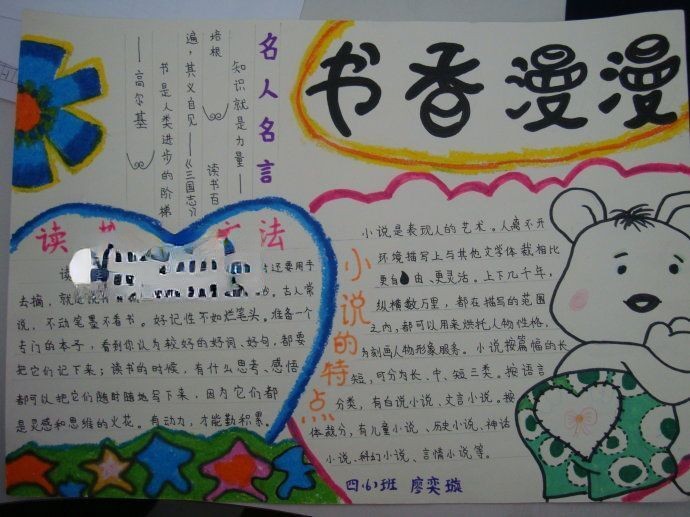 书香漫漫
名人名言
知识就是力量——
培根
读书百
遍，其义自见——《三国志》
书是人类进步的阶梯
——高尔基
读
方法
读
还要用手
去摘，就是
古人常
说，不动笔墨不看书。好记性不如烂笔头。准备一个
专门的本子，看到你认为较好的好词、好句，都要
把它们记下来；读书的时候，有什么思考、感悟
都可以把它们随时随地写下来，因为它们都
是灵感和思维的火花。有动力，才能勤积累。
小说的特点
小说是表现人的艺术。人离不开
环境描写上与其他文学体裁相比
更自由、更灵活。上下几千年，
纵横数万里，都在描写的范围
之内，都可以用来烘托人物性格，
为刻画人物形象服务。小说按篇幅的长
短，可分为长、中、短三类。按语言
分类，有白说小说、文言小说。按
体裁分，有儿童小说、历史小说、神话
小说、科幻小说、言情小说等。
四（6）班 廖奕璇